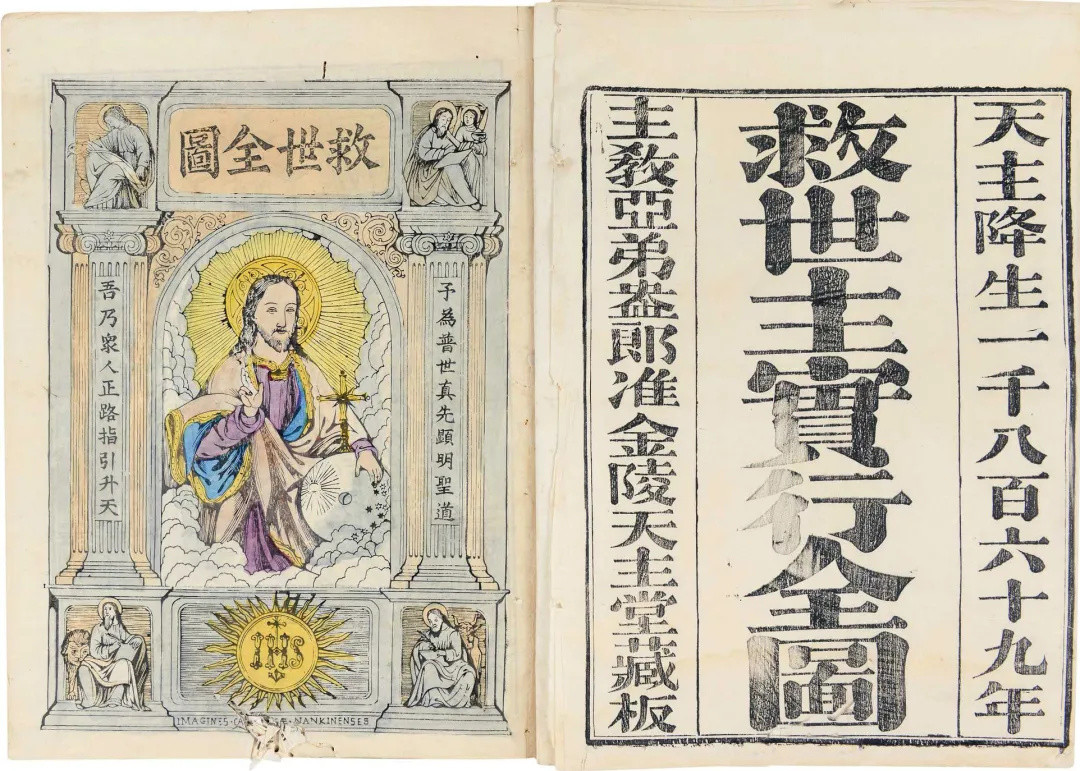 天主降生一千八百六十九年
救世主實行全圖
主敎亞弟盎郎准金陵天主堂藏板
救世全圖
予為普世真先顯明聖道
吾乃衆人正路指引升天
IHS
IMAGINES NANKINENSES